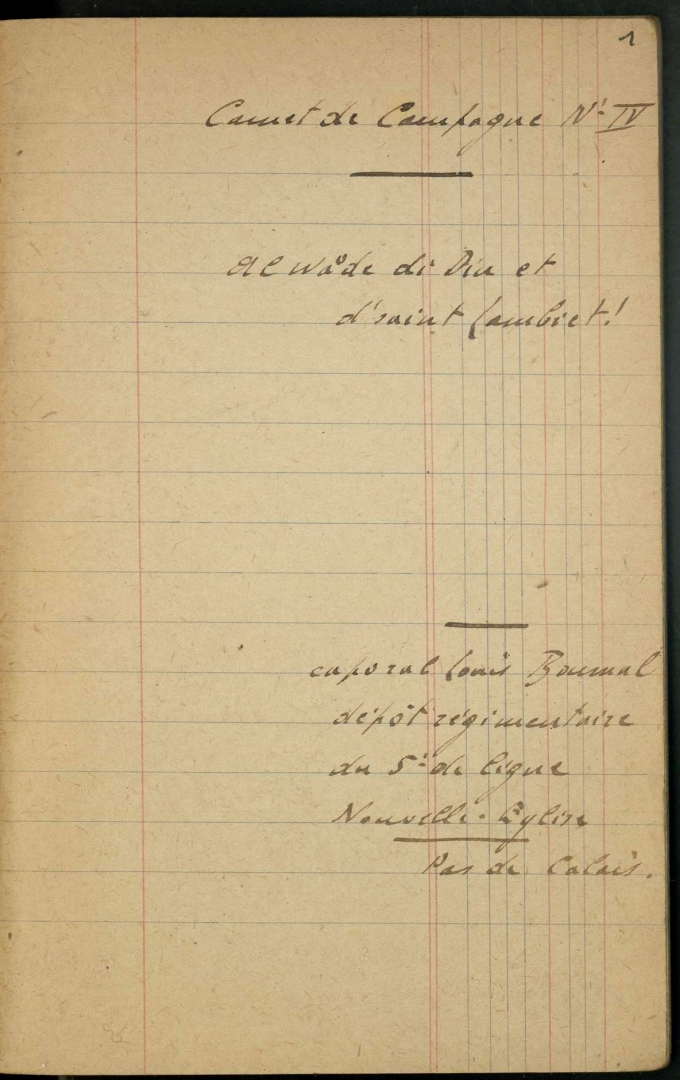 1
Carnet de Campagne N° IV
Al wåde di Diu et
d'saint Lambiet!
caporal Louis Boumal
dépôt régimentaire
du 5e de ligne
Nouvelle-Eglise
Pas de Calais.